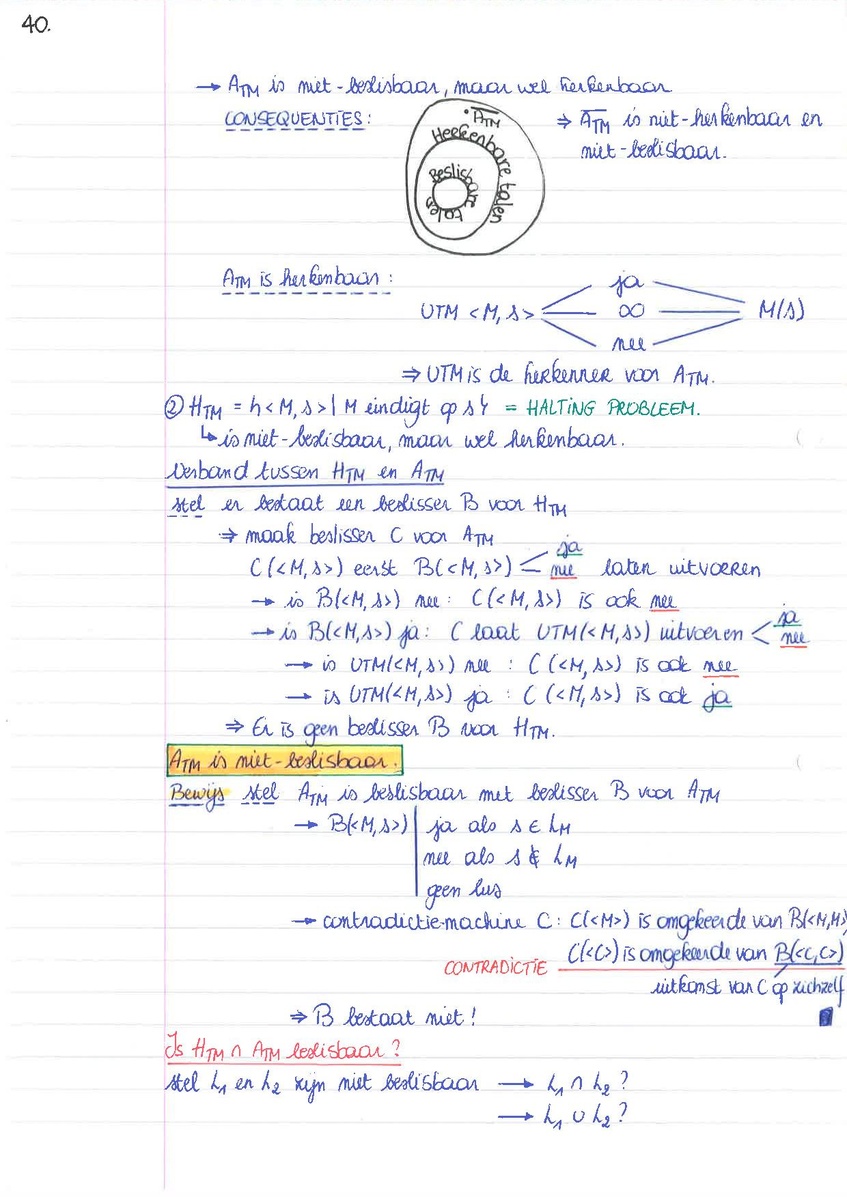 40.
→ ATM is niet-beslisbaar, maar wel herkenbaar
CONSEQUENTIES:
• A̅TM
Herkenbare talen
Beslisbare talen
⇒ A̅TM is niet-herkenbaar en
niet-beslisbaar.
ATM is herkenbaar:
UTM <M,s>
ja
∞
nee
M(s)
⇒ UTM is de herkenner voor ATM.
② HTM = {<M,s> | M eindigt op s} = HALTING PROBLEEM.
↳ is niet-beslisbaar, maar wel herkenbaar.
Verband tussen HTM en ATM
stel er bestaat een beslisser B voor HTM
⇒ maak beslisser C voor ATM
C(<M,s>) eerst B(<M,s>) < ja nee laten uitvoeren
→ is B(<M,s>) nee: C(<M,s>) is ook nee
→ is B(<M,s>) ja: C laat UTM(<M,s>) uitvoeren < ja nee
→ is UTM(<M,s>) nee : C(<M,s>) is ook nee
→ is UTM(<M,s>) ja : C(<M,s>) is ook ja
⇒ Er is geen beslisser B voor HTM.
ATM is niet-beslisbaar.
Bewijs stel ATM is beslisbaar met beslisser B voor ATM
→ B(<M,s>) | ja als s ∈ LM
nee als s ∉ LM
geen lus
→ contradictie-machine C: C(<M>) is omgekeerde van B(<M,M>)
C(<C>) is omgekeerde van B(<C,C>)
CONTRADICTIE
uitkomst van C op zichzelf
⇒ B bestaat niet!
Is HTM ∩ ATM beslisbaar?
stel L1 en L2 zijn niet beslisbaar → L1 ∩ L2?
→ L1 ∪ L2?